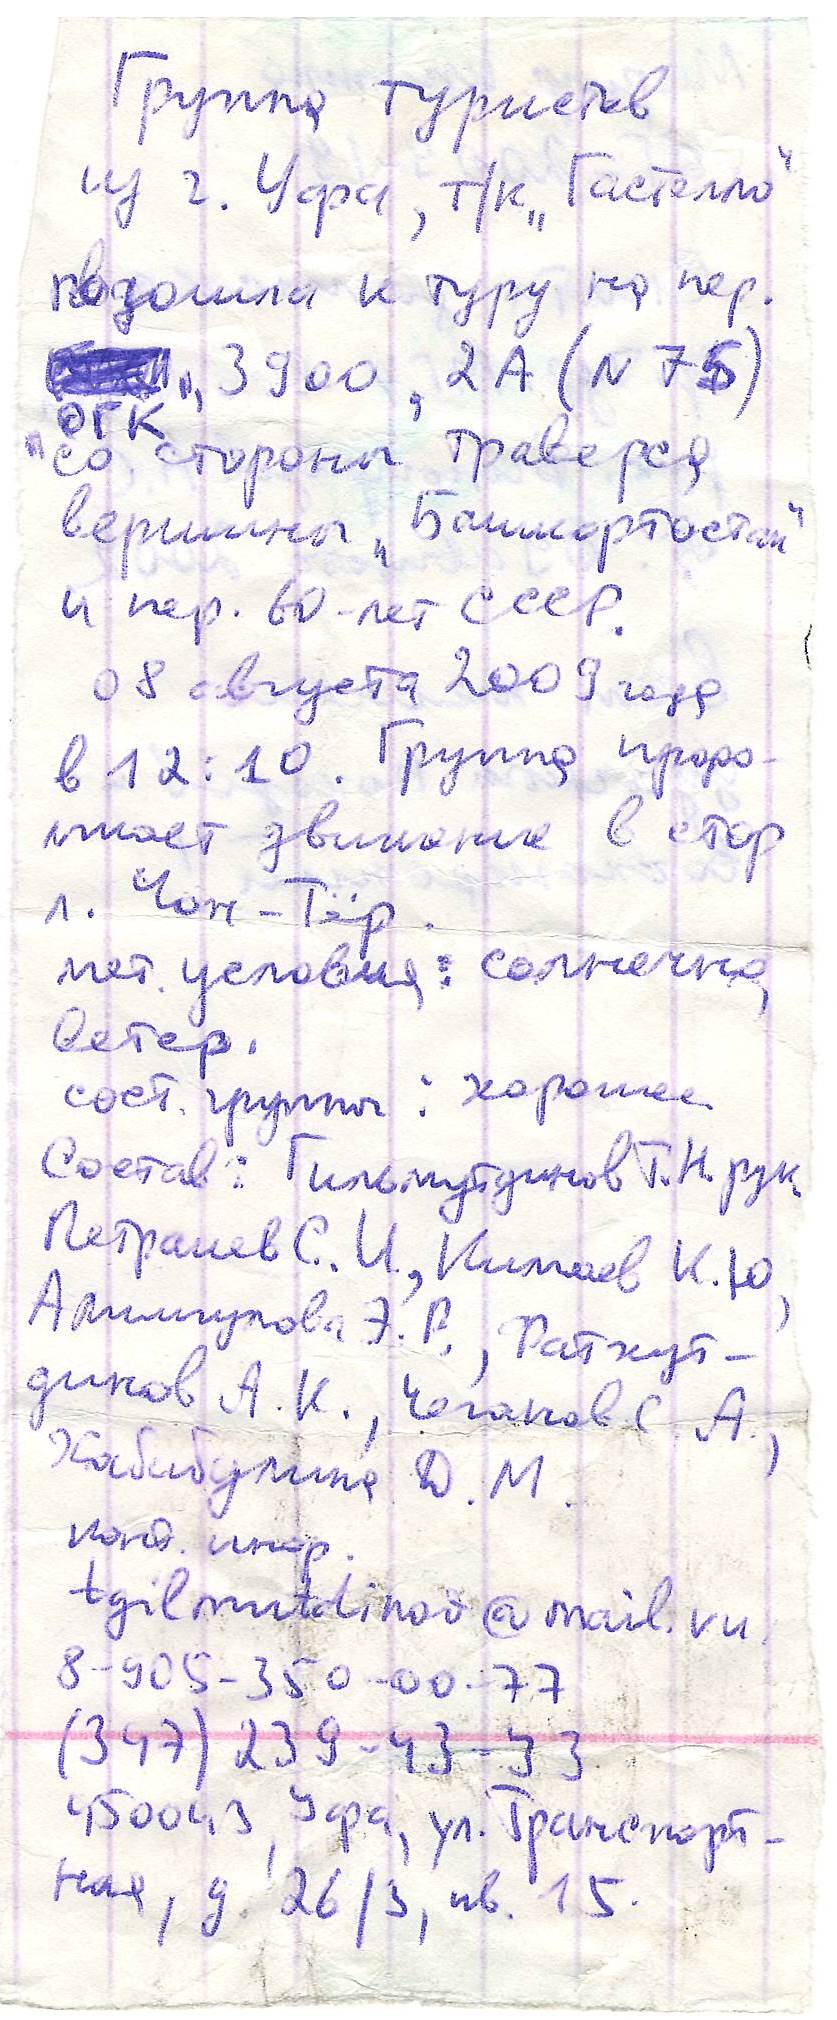 Группа туристов
из г. Уфа, т/к „Гастелло"
подошла к туру на пер.
„ОГК", 3900, 2А (N 75)
со стороны траверса
вершины „Башкортостан"
и пер. 60-лет СССР.
08 августа 2009 года
в 12:10. Группа продо-
лжает движение в стор
л. Чон-Тёр.
мет. условия: солнечно,
ветер.
сост. группы: хорошее
Состав: Гильмутдинов Т.Н. рук
Петрашев С. И., Кимаев К.Ю,
Алимгулова Э. Р., Фатхут-
динов А. К., Чеганов С. А.,
Хабибулина Д. М.
конт. инф.
tgilmutdinov@mail.ru,
8-905-350-00-77
(347) 239-43-33
450043, Уфа, ул. Транспорт-
ная, д. 26/3, кв. 15.